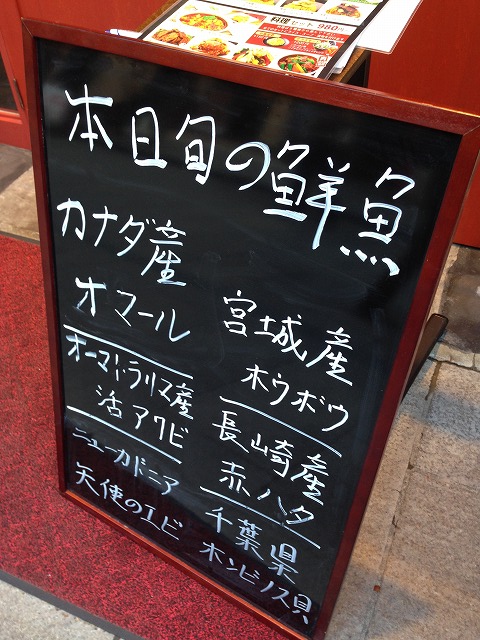 料理セット 980円
本日旬の鮮魚
カナダ産
オマール
オーストラリア産
活アワビ
ニューカドニア
天使のエビ
宮城産
ホウボウ
長崎産
赤ハタ
千葉県
ホンビノス貝